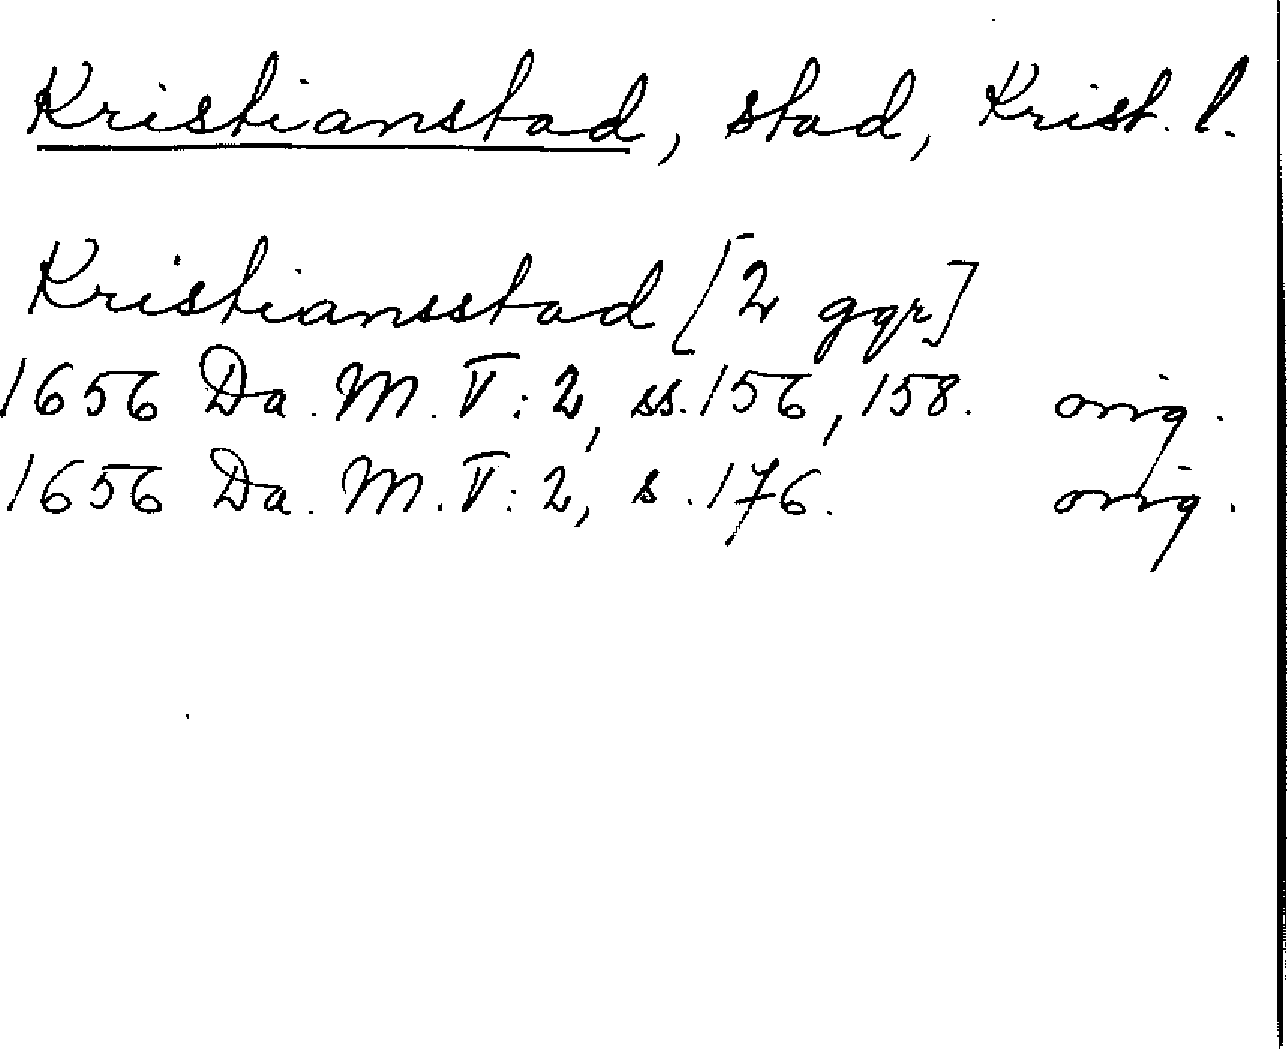 Kristianstad, stad, Krist. l.
Kristiansstad [2 ggr]
1656 Da. M. V:2, ss. 156, 158. orig.
1656 Da. M. V:2, s. 176. orig.